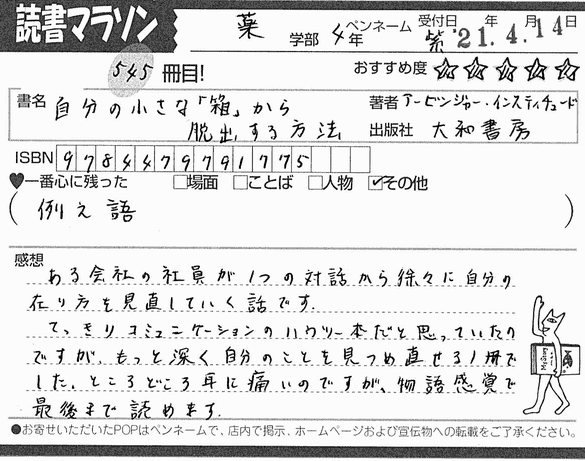 読書マラソン
薬 学部 4年 ペンネーム 紫 受付日'21年4月14日
545冊目! おすすめ度 ☆☆☆☆☆
書名 自分の小さな「箱」から 著者 アービンジャー・インスティチュート
脱出する方法 出版社 大和書房
ISBN 9784479791775
♥一番心に残った □場面 □ことば □人物 ☑その他
(例え話)
感想
ある会社の社員が1つの対話から徐々に自分の
在り方を見直していく話です.
てっきりコミュニケーションのハウツー本だと思っていたの
ですが、もっと深く自分のことを見つめ直せる1冊で
した. ところどころ耳に痛いのですが、物語感覚で
最後まで読めます.
●お寄せいただいたPOPはペンネームで、店内で掲示、ホームページおよび宣伝物への転載をご了承ください。